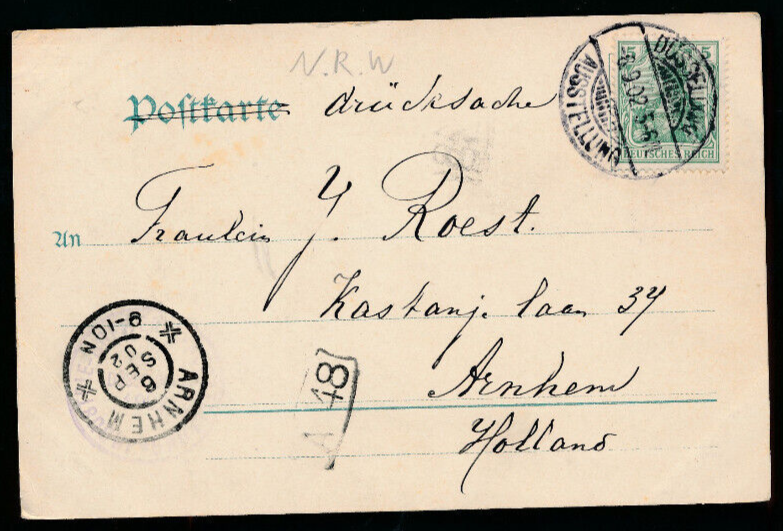 N.R.W
Postkarte drücksache
DÜSSELDORF
AUSSTELLUNG
5
DEUTSCHES REICH
An Fraulein J. Roest.
Kastanje laan 37
Arnhem
Holland
ARNHEM
6 SEP 02
9-10N
A 48